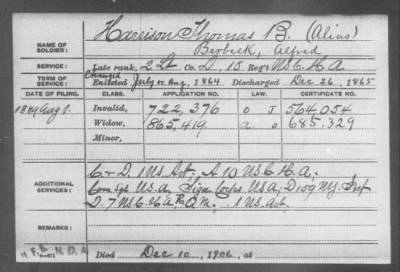 NAME OF SOLDIER:
Harrison Thomas B. (Alias)
Berbeck, Alfred
SERVICE:
Late rank, 2 Lt Co. D, 15 Reg't U.S.C.H.A.
TERM OF SERVICE:
Changed
Enlisted July or Aug, 1864 Discharged Dec 26, 1865
DATE OF FILING. CLASS. APPLICATION NO. LAW. CERTIFICATE NO.
1889 Aug 1. Invalid, 722,376 O J 564,054
Widow, 865,419 a o 685.329
Minor,
ADDITIONAL SERVICES:
C & D, 1 U.S. Art., A 10 U.S.C.H.A.
Com Sgt U.S.A, Sign Corps U.S.A, D 109 N.Y. Inf
D. 7 U.S.C.H.A., Q.M. 1 U.S. Art.
REMARKS:
N.D.A.
Died Dec 10, 1906, at